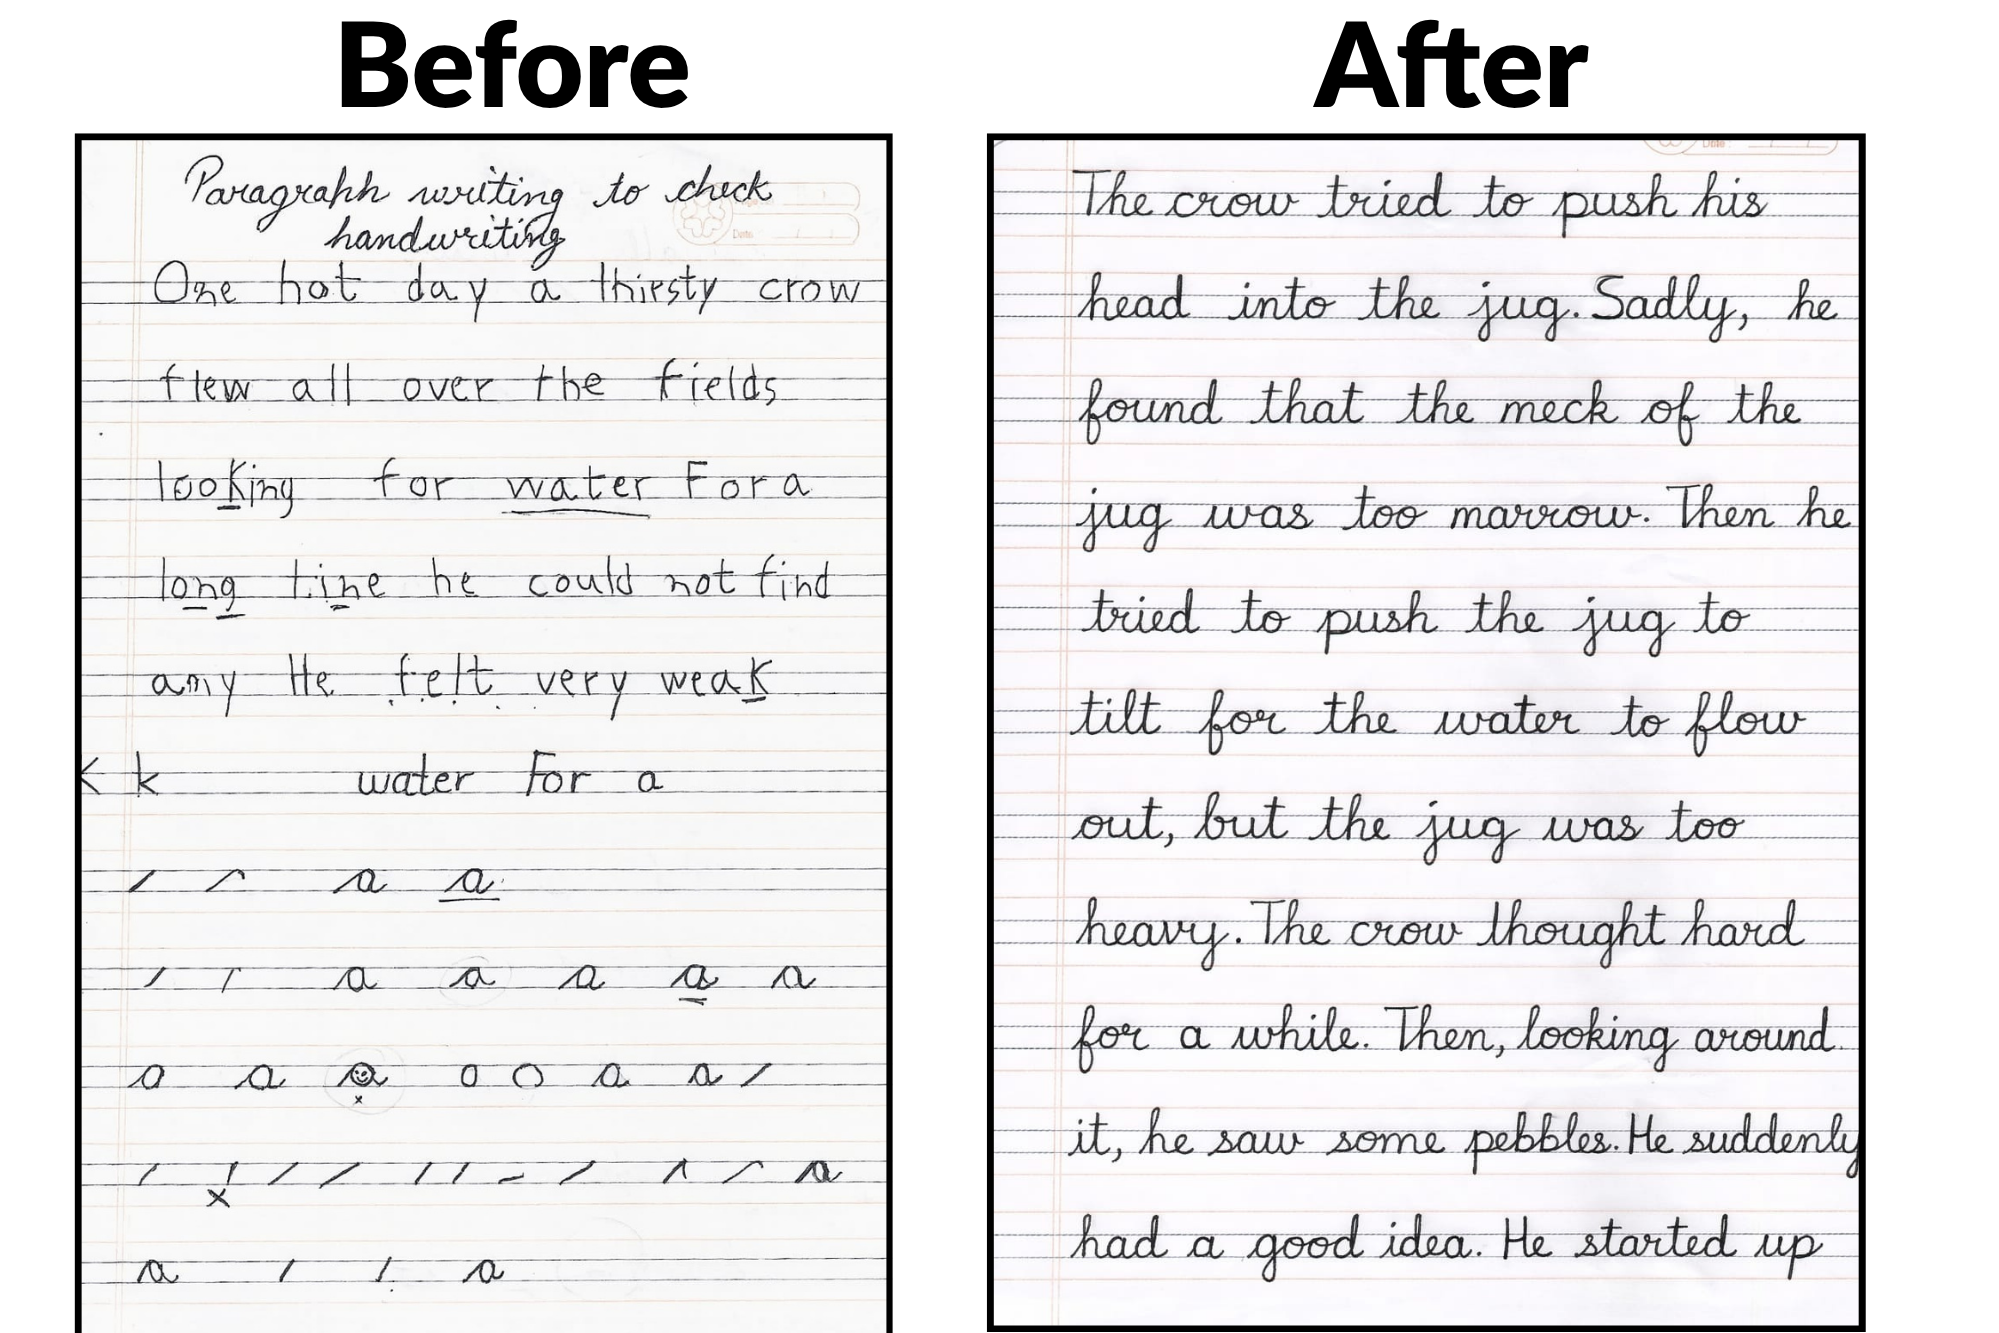 Before
Paragrahh writing to check
handwriting
One hot day a thirsty crow
flew all over the fields
looking for water For a
long tine he could not find
amy He felt very weak
K k water For a
a a
a a a a a
a a a o o a a
a
a a
After
Date
The crow tried to push his
head into the jug. Sadly, he
found that the meck of the
jug was too marrow. Then he
tried to push the jug to
tilt for the water to flow
out, but the jug was too
heavy. The crow thought hard
for a while. Then, looking around
it, he saw some pebbles. He suddenly
had a good idea. He started up